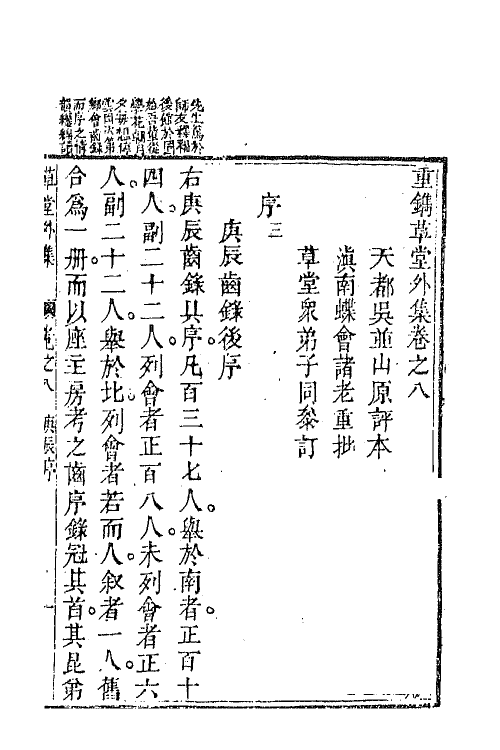 重鐫草堂外集卷之八
天都吳並山原評本
滇南蝶會諸老重批
草堂衆弟子同叅訂
序三
庚辰齒錄後序
右庚辰齒錄具序凡百三十七人舉於南者正百十
四人副二十二人列會者正百八人未列會者正六
人副二十二人舉於北列會者若而人叙者一人舊
合為一冊而以座主房考之齒序錄冠其首其昆弟
草堂外集 卷之八 庚辰序 一
先生篤於
師友
後